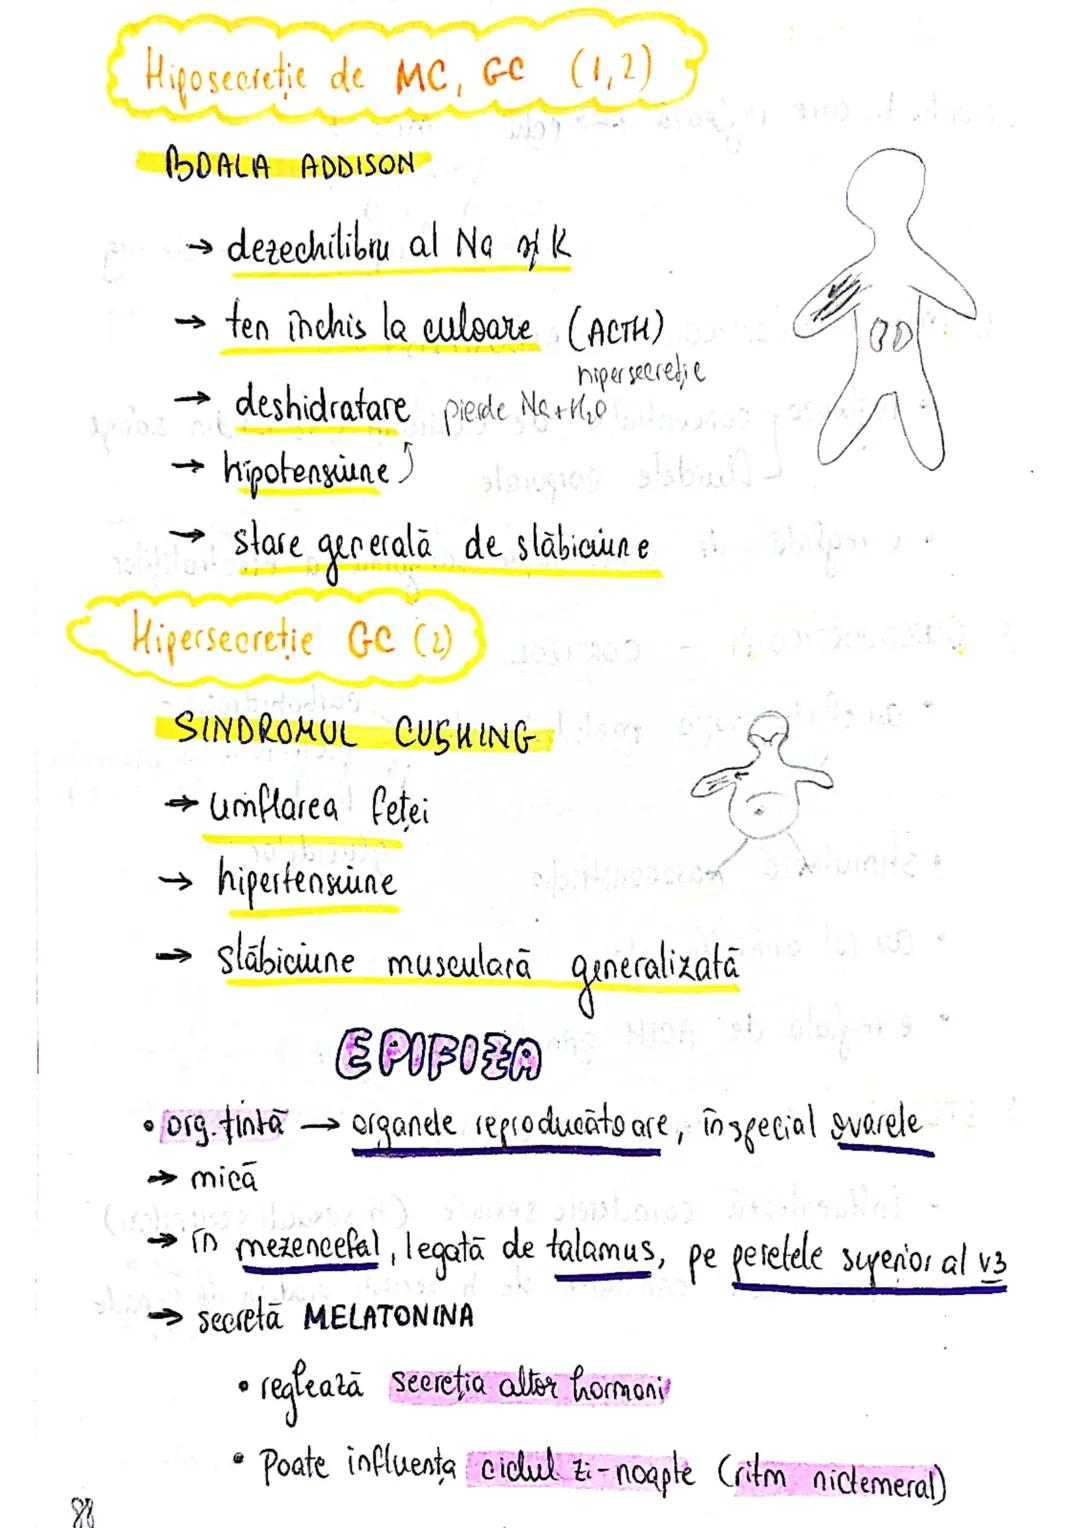 Hiposecreție de MC, GC (1,2)
BOALA ADDISON
→ dezechilibru al Na și K
→ ten închis la culoare (ACTH)
hipersecreție
→ deshidratare pierde Na+H₂O
→ hipotensiune
→ stare generală de slăbiciune
Hipersecreție GC (2)
SINDROMUL CUSHING
→ umflarea feței
→ hipertensiune
→ slăbiciune musculară generalizată
EPIFIZA
• org. țintă → organele reproducătoare, în special ovarele
→ mică
→ în mezencefal, legată de talamus, pe peretele superior al v3
→ secretă MELATONINA
• reglează secreția altor hormoni
• Poate influența ciclul zi-noapte (ritm nictemeral)
88